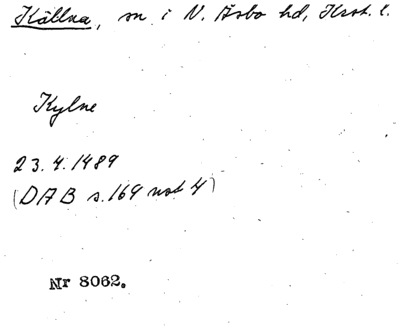 Källna, sn i N. Åsbo hd, Krist. l.
Kylne
23.4.1489
(DAB s. 164 not 4)
Nr 8062.